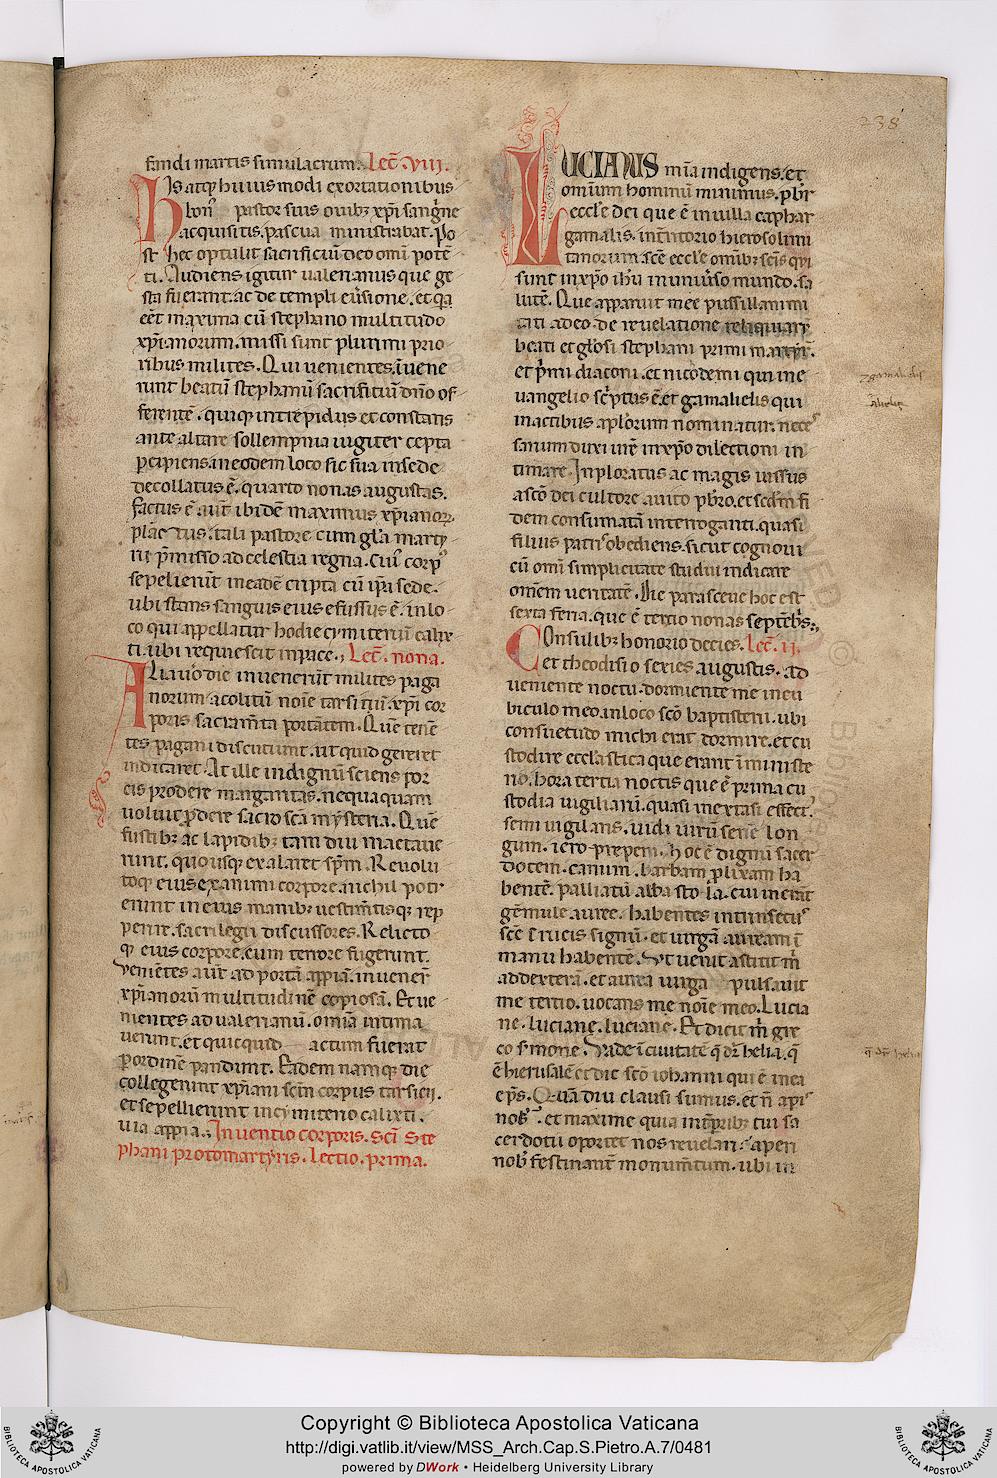 fandi martis simulacrum. Lec̄ .viii.
His atq; huiusmodi exortationibus
bon᷒ pastor suis ouib; xp̄i sangīne
acquisitis. pascua ministrabat. Po
st hec optulit sacrificiū deo omī potē
ti. Audiens igitur ualerianus que ge
sta fuerant. ac de templi eūsione. et q̄a
eēt maxima cū stephano multitudo
xp̄ianorum. missi sunt plurimi prio
ribus milites. Qui uenientes. īuene
runt beatū stephanū sacrifitiū dn̄o of
ferentē. quiq; intrepidus et constans
ante altare sollempnia iugiter cepta
p̄cipiens. in eodem loco sic sua in sede
decollatus ē. quarto nonas augustas.
factus ē aut̄ ibidē maximus xp̄ianor.
plāctus. tali pastore cum gl̄a marty
rii p̄misso ad celestia regna. Cui᷒ corp᷒
sepelierūt in eadē cripta cū ip̄a sede.
ubi stans sanguis eius effusus ē. in lo
co qui appellatur hodie cymiteriū calix
ti. ubi requiescit in pace. Lec̄. nona.
Alia uo die inuenerūt milites paga
norum acolitū noīe tarsitiū. xp̄i cor
poris sacram̄ta portātem. Quē tenē
tes pagani discutiunt. ut quid gereret
indicaret. At ille indignū sciens por
cis prodere margaritas. nequaquam
uoluit p̄dere sacrosc̄a mysteria. Quē
fustib; ac lapidib; tam diu mactaue
runt. quousq; exalaret sp̄m. Reuolu
toq; eius exanimi corpore. nichil pote
erunt in eius manib; uestim̄tisq; rep
perire. sacrilegii discussores. Relicto
q; eius corpore. cum terrore fugerunt.
Venientes aūt ad portā appiā. inuener̄
xp̄ianorū multitudinē copiosā. Et ue
nientes ad ualerianū. omīa intima
uerunt. et quicquid actum fuerat
p ordinē pandunt. Eadem namq; die
collegerunt xp̄iani sc̄m corpus tarsicii.
et sepellierunt in cymiterio calixti.
uia appia. Inuentio corporis. Sc̄i Ste
phani protomartyris. lectio. prima.
LUCIANUS mīa indigens. et
omnium hominū minimus. p̄br
eccl̄e dei que ē in uilla caphar
gamalis. in t̄ritorio hierosolimi
tanorum. sc̄e eccl̄e omīb; sc̄is qui
sunt in xp̄o ih̄u in uniu͛so mundo. sa
lutē. Que apparuit mee pussillanimi
tati adeo. de reuelatione reliquiarum
beati et gl̄osi stephani primi martyr̄.
et p̄mi diaconi. et nicodemi qui in e
uangelio sc̄ptus ē. et gamalielis qui
in actibus apl̄orum nominatur. nece
sarium duxi uīe in xp̄o dilectioni in
timare. Inploratus ac magis iussus
a sc̄o dei cultore auito p̄bro. et scd̄m fi
dem consumatā interroganti. quasi
filius patri obediens. sicut cognoui
cū omī simplicitate studui indicare
omēm ueritatē. Die parasceue hoc est
sexta feria. que ē tertio nonas septēb̄s.
Consulib; honorio decies. Lec̄. ii.
et theodisio sexies augustis. ad
ueniente noctu. dormiente me in cu
biculo meo. in loco sc̄o baptisterii. ubi
consuetudo michi erat dormire. et cu
stodire eccl̄astica que erant ī miniſte
rio. hora tertia noctis que ē prima cu
stodia uigiliarū. quasi in extasi effect᷒
semi uigilans. uidi uirū senē lon
gum. iero prepem. hoc ē dignū sacer
dotem. canum. barbam plixam ha
bentē. palliatū alba stola. cui inerāt
gēmule auree. habentes intrinsecus
sc̄e crucis signū. et uirgā auream ī
manu habentē. Et uenit astitit m̄
ad dexterā. et aurea uirga pulsauit
me tertio. uocans me noīe meo. Lucia
ne. luciane. luciane. Et dicit m̄ gre
co s̄mone. Vade ī ciuitatē q̄ d̄r helia. q̄
ē hierusalē et dic sc̄o iohanni qui ē inea
ep̄s. Quā diu clausi sumus. et n̄ apis
nob̄. et maxime quia in tēprib; tui sa
cerdotii oportet nos reuelari: aperi
nob̄ festinant̄ monum̄tum. ubi in
238
z gamalielis
q̄ d̄r helia
Copyright © Biblioteca Apostolica Vaticana
http://digi.vatlib.it/view/MSS_Arch.Cap.S.Pietro.A.7/0481
powered by DWork • Heidelberg University Library
BIBLIOTECA APOSTOLICA VATICANA
BIBLIOTECA APOSTOLICA VATICANA